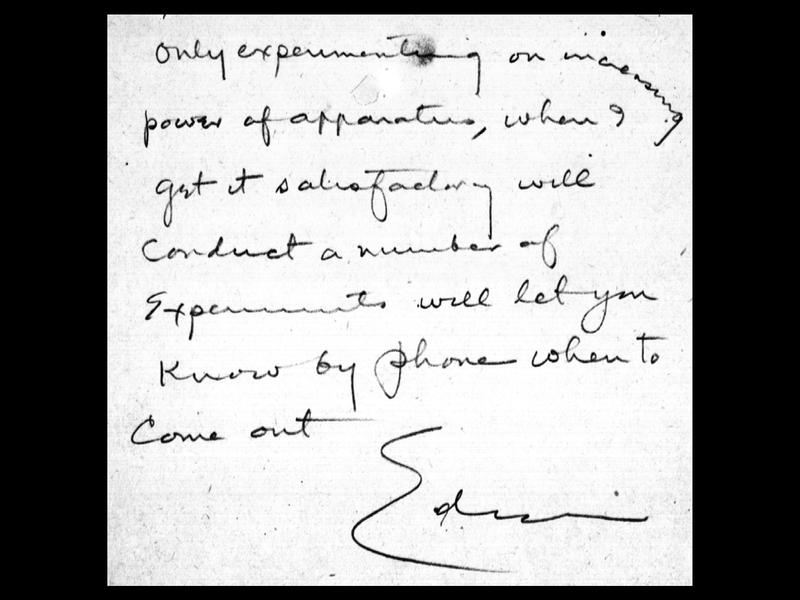 only experimenting on increasing
power of apparatus, when I
get it satisfactory will
Conduct a number of
Experiments will let you
Know by phone when to
Come out
Edwin